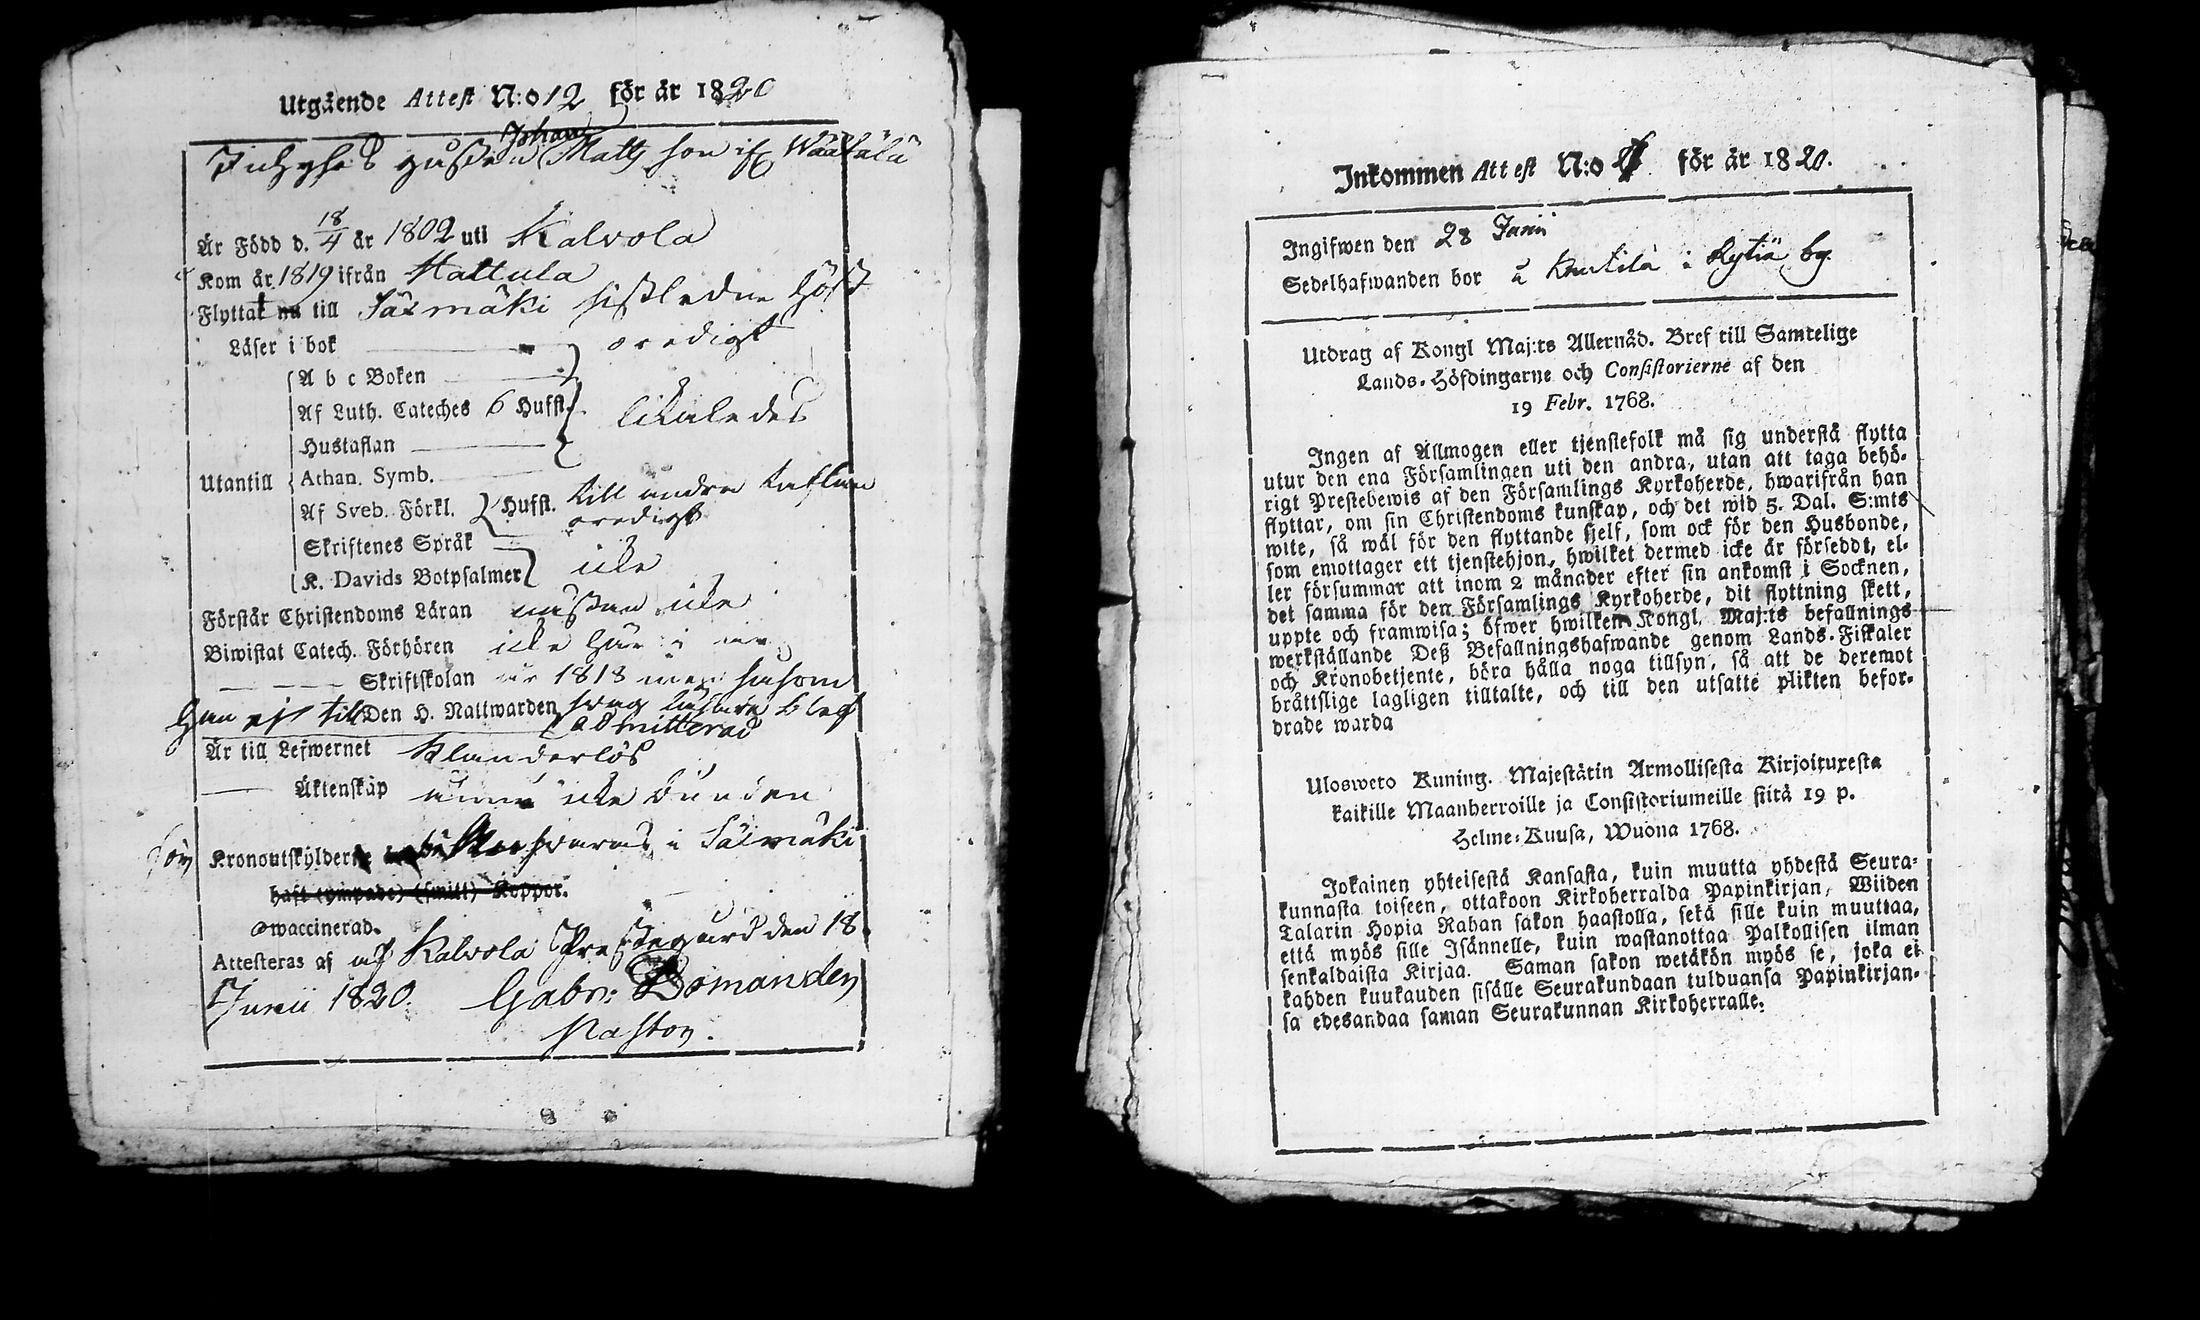 Utgående Attest N:o 12 för år 1820
Johan
Matts son if Wäätälä
Är Född d. 18/4 år 1802 uti Kalvola
Kom år 1819 ifrån Hattula
Flyttat nu till Säxmäki sistledne höst
Läser i bok oredigt
A b c Boken
Af Luth. Cateches 6 Hufst. likaledes
Hustaflan
Utantill Athan. Symb.
Af Sveb. Förkl. Hufst. till andra taflan
oredigt
Skriftenes Språk
K. Davids Botpsalmer icke
Förstår Christendoms Läran nästan icke
Biwistat Catech. Förhören icke här
Skriftskolan år 1818 men såsom
Den H. Nattwarden svag
admitterad
Är till Lefwernet klanderlös
Äktenskap ännu icke bunden
Kronoutskylderne svaras i Säxmäki
haft (ympade) (smitt) Koppor.
waccinerad.
Attesteras af Kalvola Prestegård den 18
Junii 1820. Gabr: Bomander
Pastor.
Inkommen Attest N:o för år 1820.
Ingifwen den 28 Junii
Sedelhafwanden bor å Knuutila i Rytiä by.
Utdrag af Kongl Maj:ts Allernåd. Bref till Samtelige
Lands-Höfdingarne och Consistorierne af den
19 Febr. 1768.
Ingen af Allmogen eller tjenstefolk må sig understå flytta
utur den ena Församlingen uti den andra, utan att taga behö-
rigt Prestebewis af den Församlings Kyrkoherde, hwarifrån han
flyttar, om sin Christendoms kunskap, och det wid 5. Dal. S:mts
wite, så wäl för den flyttande sjelf, som ock för den Husbonde,
som emottager ett tjenstehjon, hwilket dermed icke är förseddt, el-
ler försummar att inom 2 månader efter sin ankomst i Socknen,
det samma för den Församlings Kyrkoherde, dit flyttning skett,
uppte och framwisa; öfwer hwilken Kongl. Maj:ts befallnings
werkställande Deß Befallningshafwande genom Lands-Fiskaler
och Kronobetjente, böra hålla noga tillsyn, så att de deremot
bråttslige lagligen tilltalte, och till den utsatte plikten befor-
drade warda
Ulosweto Kuning. Majestätin Armollisesta Kirjoituxesta
kaikille Maanherroille ja Consistoriumeille siitä 19 p.
Helme-Kuusa, Wuona 1768.
Jokainen yhteisestä Kansasta, kuin muutta yhdestä Seura-
kunnasta toiseen, ottakoon Kirkoherralda Papinkirjan, Wiiden
Talarin Hopia Rahan sakon haastolla, sekä sille kuin muuttaa,
että myös sille Isännelle, kuin wastanottaa Palkollisen ilman
senkaldaista Kirjaa. Saman sakon wetäkön myös se, joka ei
kahden kuukauden sisälle Seurakundaan tulduansa Papinkirjan-
sa edesandaa saman Seurakunnan Kirkoherralle.